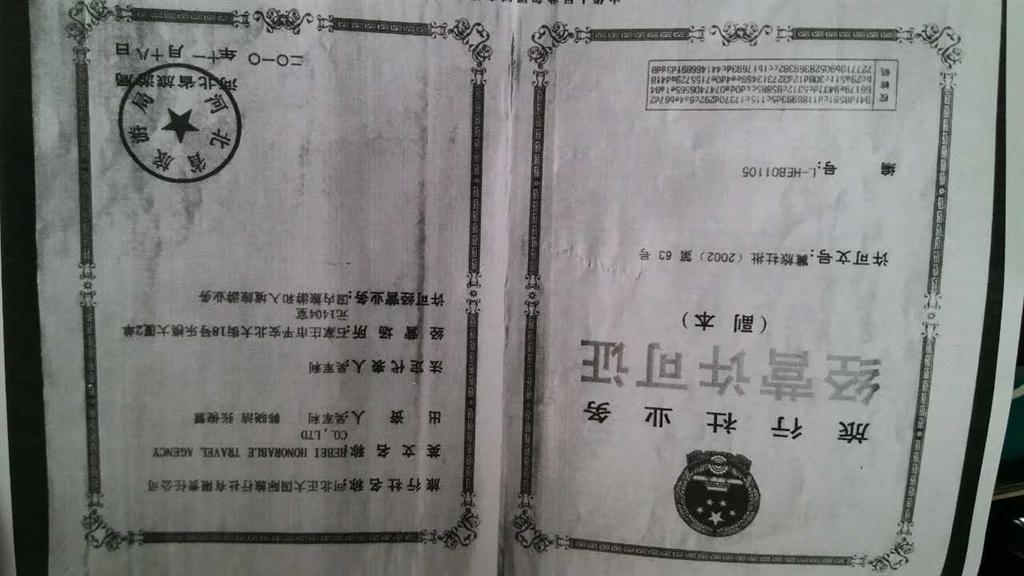 旅行社业务
经营许可证
（副本）
许可文号：冀旅社批（2002）第 63 号
编号：L-HEB01105
校验码
旅行社名称 河北正大国际旅行社有限责任公司
英文名称 HEBEI HONORABLE TRAVEL AGENCY
CO,.LTD
出资人 吴军利 韩晓洁 张俊霞
法定代表人 吴军利
经营场所 石家庄市平安北大街18号乐模大厦2单
元1404室
许可经营业务：国内旅游和入境旅游业务
河北省旅游局
河北省旅游局
二○一○年十一月十八日